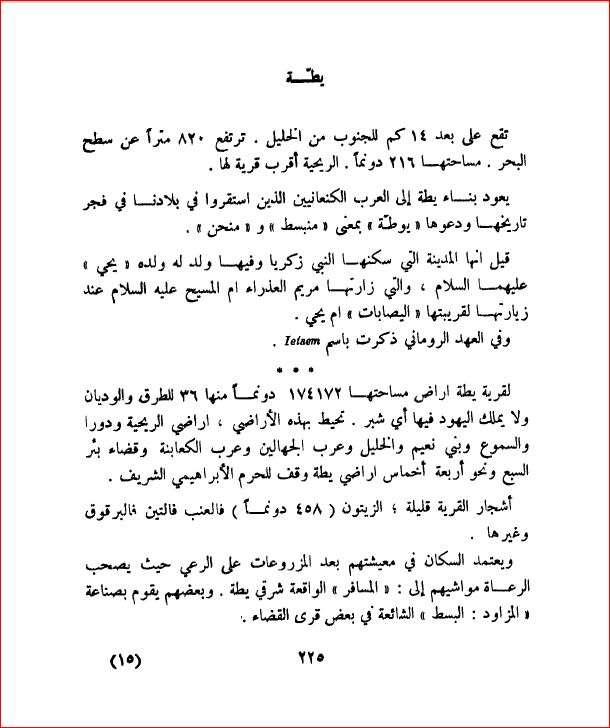 يطّـــة
تقع على بعد ١٤ كم للجنوب من الخليل . ترتفع ٨٢٠ متراً عن سطح
البحر . مساحتهـــا ٢١٦ دونماً . الريحية أقرب قرية لها .
يعود بنـــاء يطة إلى العرب الكنعانيين الذين استقروا في بلادنـــا في فجر
تاريخهـــا ودعوها « يوطّة » بمعنى « منبسط » و « منحن » .
قيل انها المدينة التي سكنهـــا النبي زكريا وفيهـــا ولد له ولده « يحي »
عليهمـــا السلام ، والتّي زارتهـــا مريم العذراء ام المسيح عليه السلام عند
زيارتهـــا لقريبتها « اليصابات » ام يحي .
وفي العهد الروماني ذكرت باسم Ietaem .
* * *
لقرية يطة اراض مساحتهـــا ١٧٤١٧٢ دونمـــاً منها ٣٦ للطرق والوديان
ولا يملك اليهود فيها أي شبر . تحيط بهذه الأراضي ، اراضي الريحية ودورا
والسموع وبني نعيم والخليل وعرب الجهالين وعرب الكعابنة وقضاء بئر
السبع ونحو أربعة أخماس اراضي يطة وقف للحرم الأبراهيمي الشريف .
أشجار القرية قليلة ؛ الزيتون ( ٤٥٨ دونمـــاً ) فالعنب فالتين فالبرقوق
وغيرها .
ويعتمد السكان في معيشتهم بعد المزروعات على الرعي حيث يصحب
الرعـــاة مواشيهم إلى : « المسافر » الواقعة شرقي يطة . وبعضهم يقوم بصناعة
« المزاود : البسط » الشائعة في بعض قرى القضاء .
٢٢٥
(١٥)